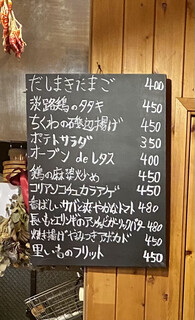 だしまきたまご 400
淡路鶏のタタキ 450
ちくわの磯辺揚げ 450
ポテトサラダ 350
オーブン de レタス 400
鶏の麻薬炒め 450
コリアンコチュカラアゲ 450
香ばしいサバと爽やかなトマト 480
長いもとエリンギのアンチョビガーリックバター 480
焼き揚げやみつきアボカド 450
里いものフリット 450